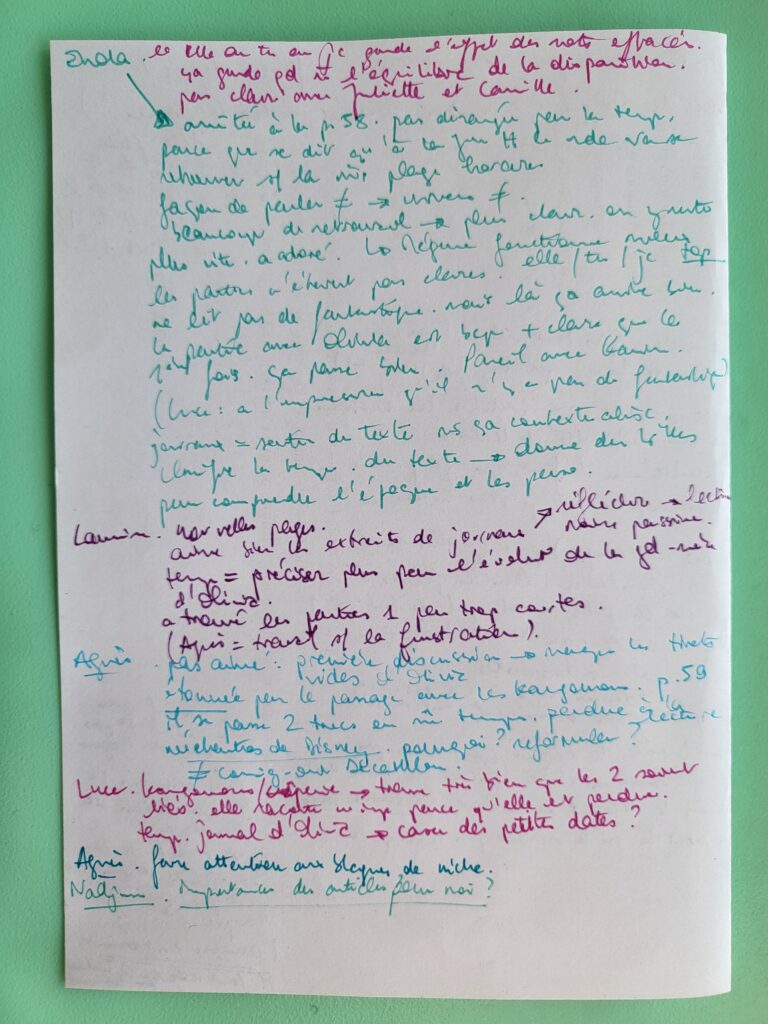 Enola . le elle ou tu ou je garde l'effet des mots effacés.
ça garde qd m̂ l'équilibre de la disparition.
pas clair avec Juliette et Camille.
arrêtée à la p. 58. pas dérangée par le temps.
parce que se dit qu'à la fin tt le monde va se
retrouver s/ la m̂ plage horaire
façon de parler ≠ → univers ≠.
beaucoup de retravail → plus clair. on y rentre
plus vite. a adoré. Le Régime fonctionne mieux
les parties n'étaient pas claires. elle / tu / je top
ne lit pas de fantastique. mais là ça amène bien.
la partie avec Olivia est bcp + claire que la
1ère fois. ça passe bien. Pareil avec
(Luce : a l'impression qu'il n'y a pas de fantastique)
journaux = sortir du texte ms ça contextualise.
clarifie le temps. du texte → donne des billes
pour comprendre l'époque et les perso.
nouvelles pages.
aime bien les extraits de journaux → réfléchir → lecture
moins passive.
temps = préciser plus pour l'évolut° de la gd-mère
d'Olivia.
a trouvé les parties 1 peu trop courtes.
(Agnès = travail s/ la frustration).
Agnès . pas aimé : première discussion →
vides d'Olivia
étonnée par le passage avec les kangourous. p. 59
il se passe 2 trucs en m̂ temps. perdue à la lecture
méchantes de Disney. pourquoi ? reformuler ?
≠ coming-out Décathlon.
Luce . kangourous / → trouve très bien que les 2 soient
liés. elle raconte parce qu'elle est perdue.
temps. journal d'Olivia → caser des petites dates ?
Agnès . faire attention aux blagues de niche.
importances des articles pour moi ?